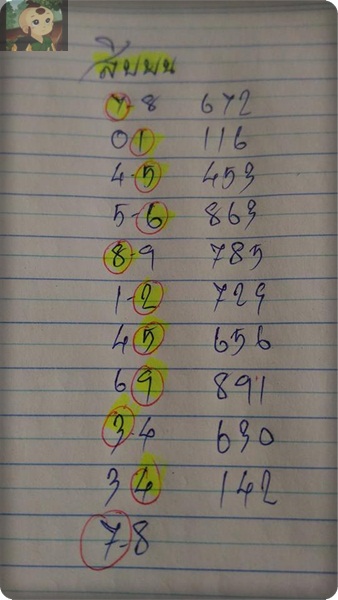 สิบบน
7-8 672
01 116
4-5 453
5-6 863
8-9 785
1-2 729
45 656
69 891
3-4 630
34 142
7-8